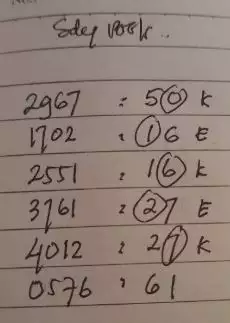 Sdy
2967 : 50 K
1702 : 16 E
2551 : 16 K
3761 : 27 E
4012 : 27 K
0576 : 61